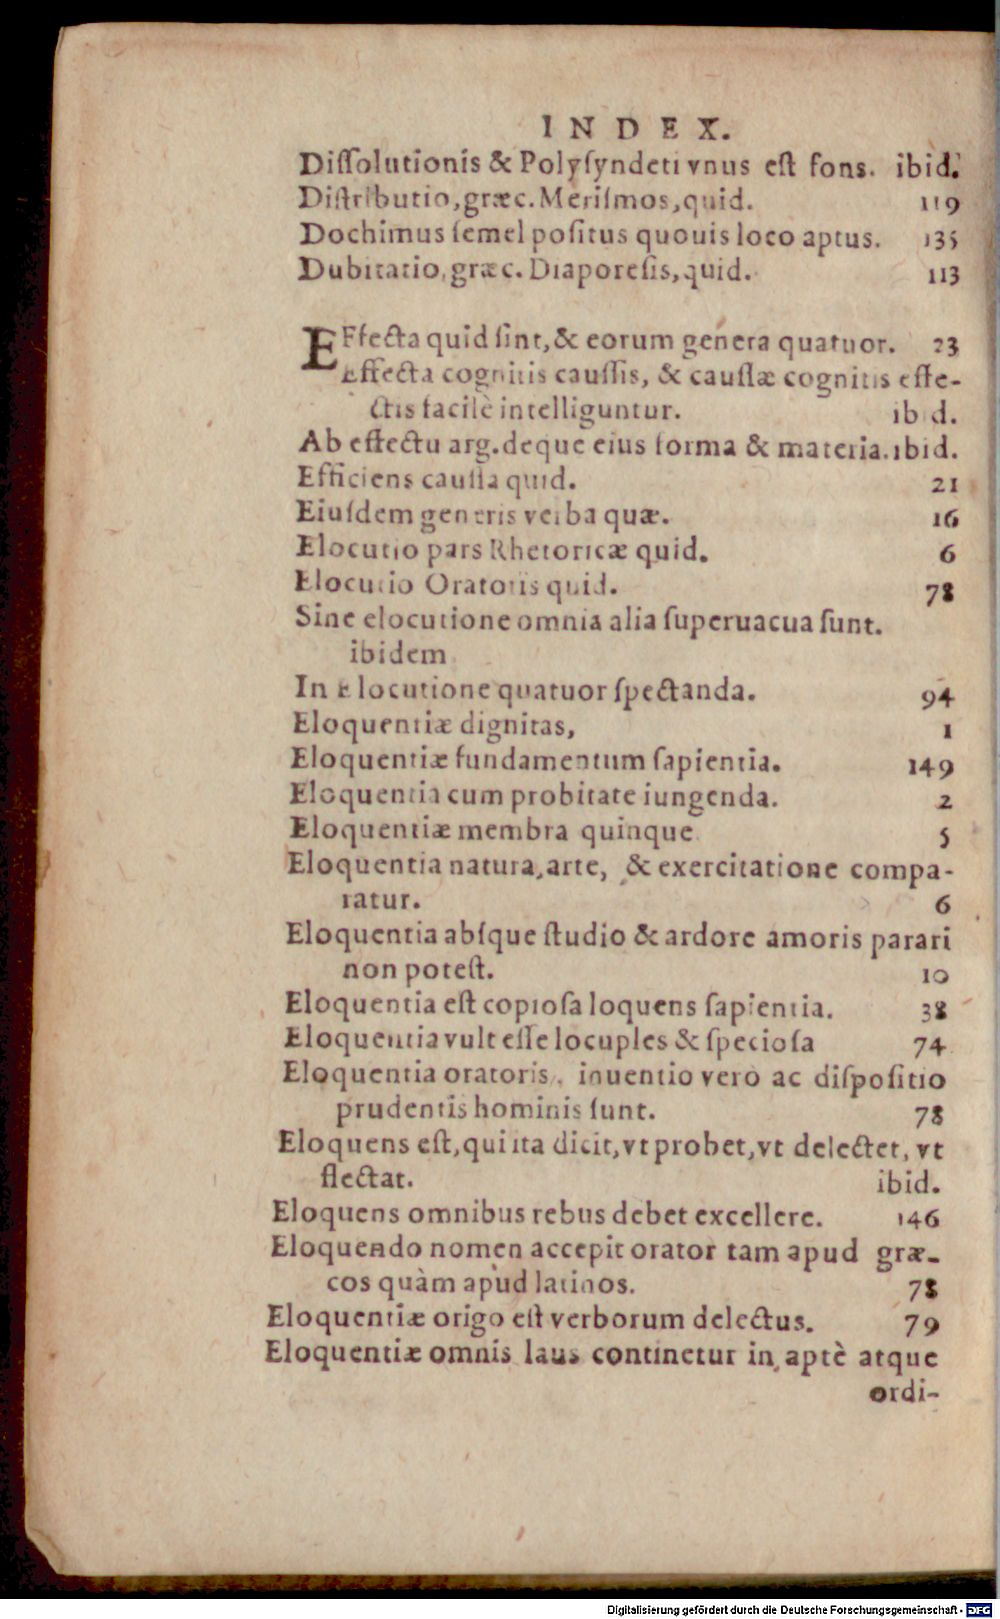 INDEX.
Diſſolutionis & Polyſyndeti vnus eſt fons. ibid.
Diſtributio, græc. Meriſmos, quid. 119
Dochimus ſemel poſitus quouis loco aptus. 135
Dubitatio, græc. Diaporeſis, quid. 113
EFfecta quid ſint, & eorum genera quatuor. 23
Effecta cognitis cauſſis, & cauſſæ cognitis effe-
ctis facilè intelliguntur. ibid.
Ab effectu arg. deque eius forma & materia. ibid.
Efficiens cauſſa quid. 21
Eiuſdem generis verba quæ. 16
Elocutio pars Rhetoricæ quid. 6
Elocutio Oratoris quid. 78
Sine elocutione omnia alia ſuperuacua ſunt.
ibidem
In Elocutione quatuor ſpectanda. 94
Eloquentiæ dignitas, 1
Eloquentiæ fundamentum ſapientia. 149
Eloquentia cum probitate iungenda. 2
Eloquentiæ membra quinque 5
Eloquentia natura, arte, & exercitatione compa-
ratur. 6
Eloquentia abſque ſtudio & ardore amoris parari
non poteſt. 10
Eloquentia eſt copioſa loquens ſapientia. 38
Eloquentia vult eſſe locuples & ſpecioſa 74
Eloquentia oratoris, inuentio verò ac diſpoſitio
prudentis hominis ſunt. 78
Eloquens eſt, qui ita dicit, vt probet, vt delectet, vt
flectat. ibid.
Eloquens omnibus rebus debet excellere. 146
Eloquendo nomen accepit orator tam apud græ-
cos quàm apud latinos. 78
Eloquentiæ origo eſt verborum delectus. 79
Eloquentiæ omnis laus continetur in aptè atque
ordi-
Digitalisierung gefördert durch die Deutsche Forschungsgemeinschaft - DFG